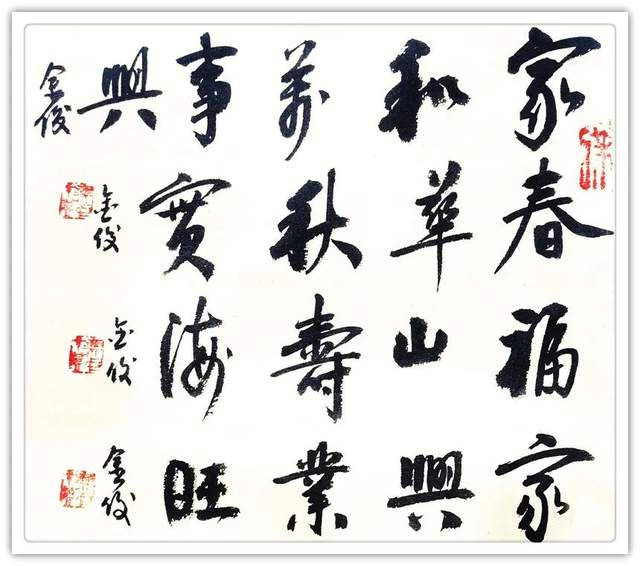 家和萬事興 金俊
春華秋實 金俊
福山壽海 金俊
家興業旺 金俊